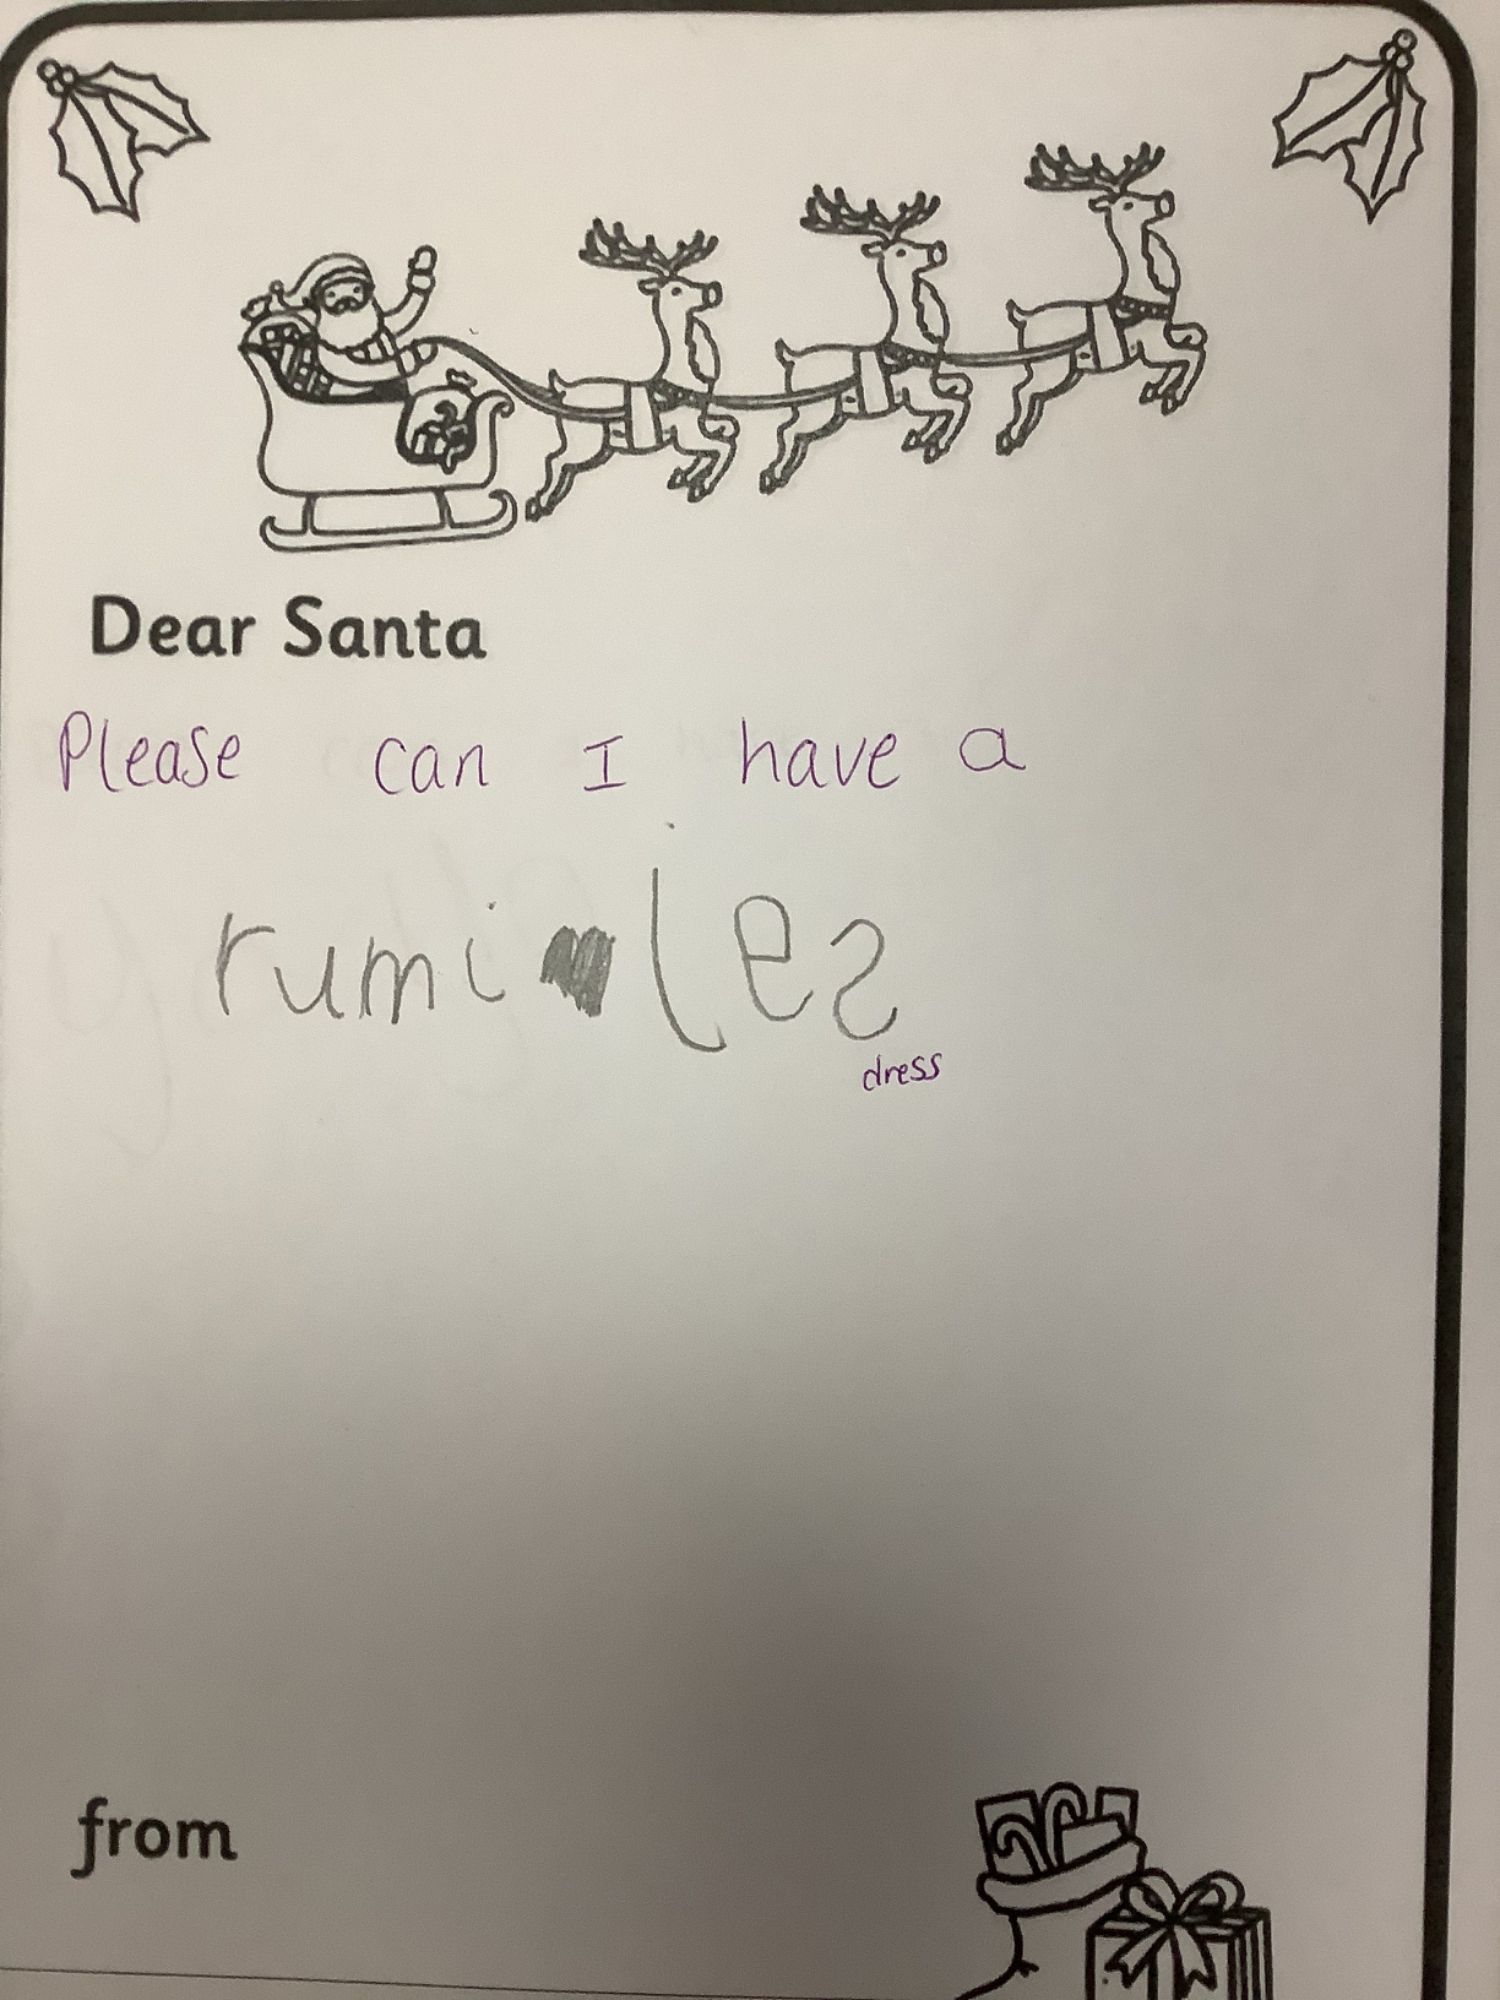 Dear Santa
Please can I have a
rumi les
dress
from